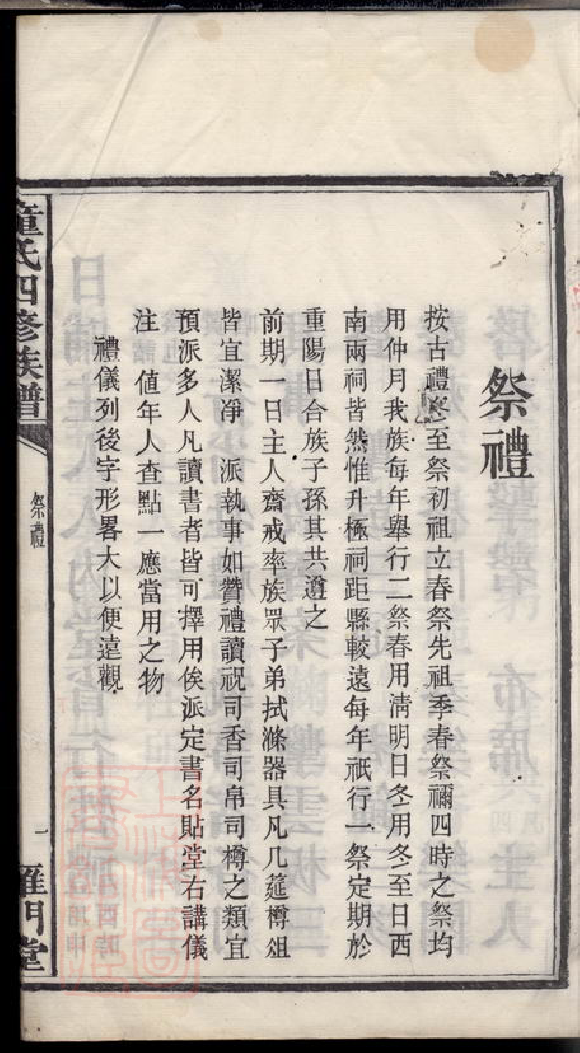 祭禮
按古禮冬至祭初祖立春祭先祖季春祭禰四時之祭均
用仲月我族每年舉行二祭春用淸明日冬用冬至日西
南兩祠皆然惟升極祠距縣較遠每年祇行一祭定期於
重陽日合族子孫其共遵之
前期一日主人齋戒率族眾子弟拭滌器具凡几筵樽俎
皆宜潔凈 派執事如贊禮讀祝司香司帛司樽之類宜
預派多人凡讀書者皆可擇用俟派定書名貼堂右講儀
注 値年人查點一應當用之物
禮儀列後字形畧大以便遠觀
童氏四修族譜
祭禮
一
雁門堂